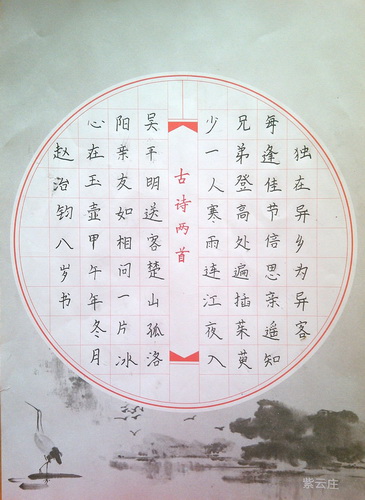 独在异乡为异客
每逢佳节倍思亲遥知
兄弟登高处遍插茱萸
少一人寒雨连江夜入
古诗两首
吴平明送客楚山孤洛
阳亲友如相问一片冰
心在玉壶甲午年冬月
赵治钧八岁书
紫云庄